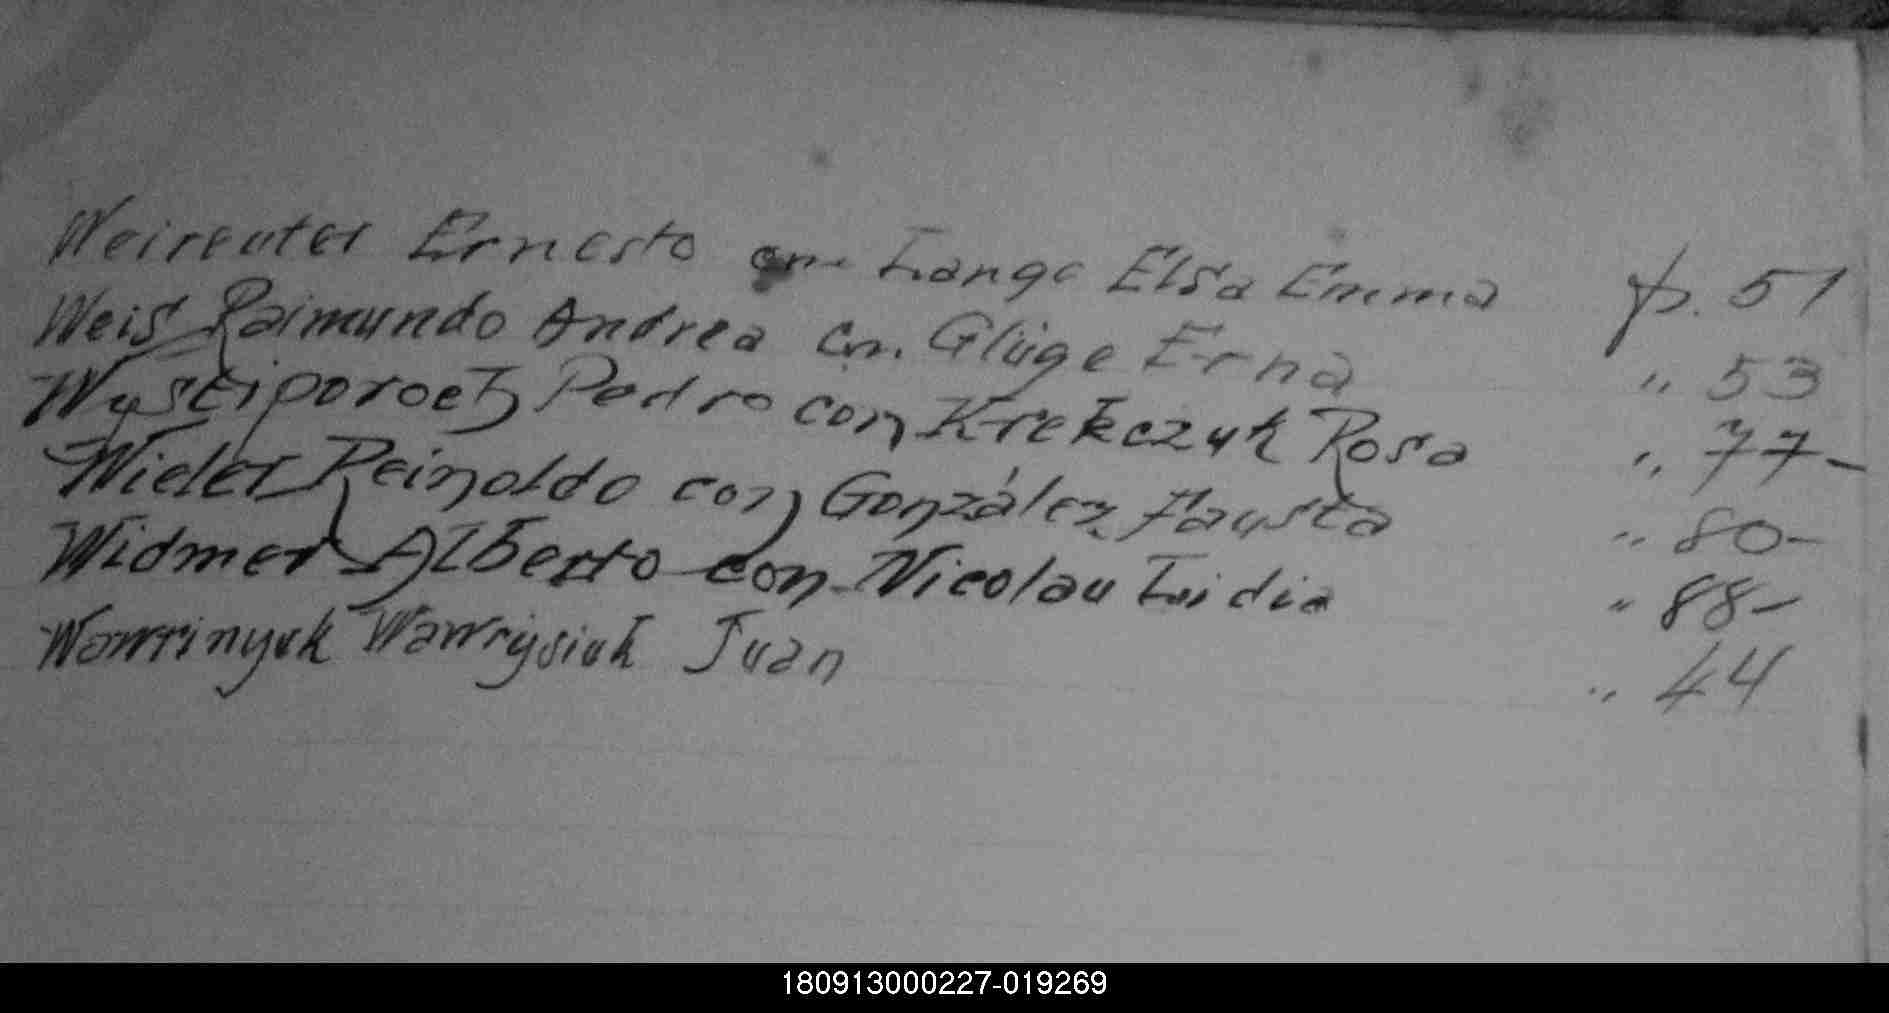 Weireuter Ernesto con Lange Elsa Emma p. 51
Weis Raimundo Andrea cn. Glüge Erna " 53
Pedro con Krekczuk Rosa " 77-
Wieler Reinoldo con González Fausta " 80-
Widmer Alberto con Nicolau Lidia " 88-
Wawrinyuk Wawrysiuk Juan " 44
180913000227-019269